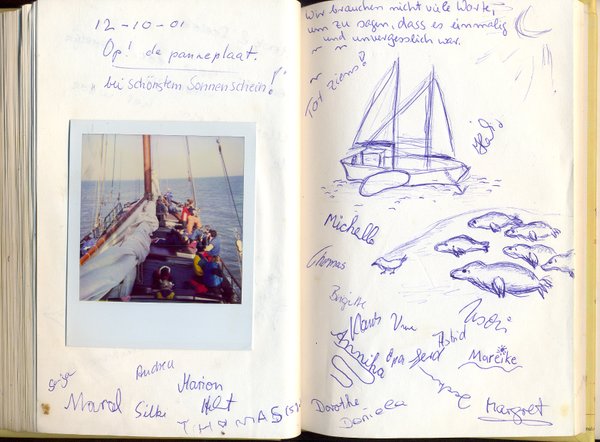 12-10-01
Op! de panneplaat.
"bei schönstem Sonnenschein!"
Andrea
Marion
Silke
THOMAS
Wir brauchen nicht viele Worte,
um zu sagen, dass es einmalig
und unvergesslich war.
Tot ziens!
Michelle
Thomas
Brigitte
Klaus
Uwe
Astrid
Uschi
Annika
Opa Gerd
Mareike
Dorothe
Daniela
Margret